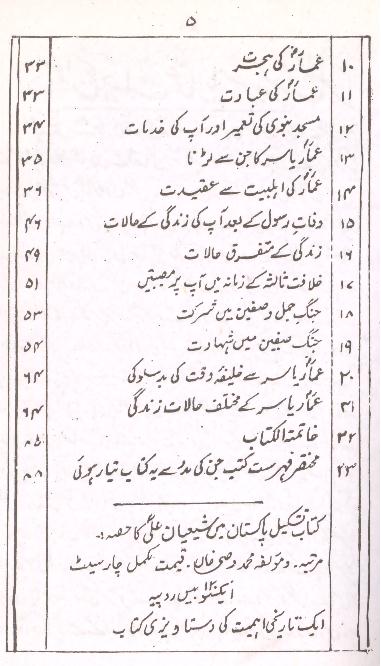 ۵
۱۰ عمارؓ کی ہجرت ۳۳
۱۱ عمارؓ کی عبادت ۳۳
۱۲ مسجد نبوی کی تعمیر اور آپ کی خدمات ۳۴
۱۳ عمارؓ یاسر کا جن سے لڑنا ۳۵
۱۴ عمارؓ کی اہلبیت سے عقیدت ۳۶
۱۵ وفات رسول کے بعد آپ کی زندگی کے حالات ۴۶
۱۶ زندگی کے متفرق حالات ۴۹
۱۷ خلافت ثالثہ کے زمانہ میں آپ پر مصیبتیں ۵۱
۱۸ جنگ جمل و صفین میں شرکت ۵۳
۱۹ جنگ صفین میں شہادت ۵۴
۲۰ عمارؓ یاسر سے خلیفۂ وقت کی بدسلوکی ۶۴
۲۱ عمارؓ یاسر کے مختلف حالات زندگی ۶۴
۲۲ خاتمۃ الکتاب ۸۵
۲۳ مختصر فہرست کتب جن کی مدد سے یہ کتاب تیار ہوئی ۸۸
کتاب تشکیل پاکستان میں شیعیان علیؑ کا حصہ:۔
مرتبہ۔ و مؤلفہ محمد وصی خاں۔ قیمت مکمل چار سیٹ
ایکسو بیس روپیہ
ایک تاریخی اہمیت کی دستاویزی کتاب